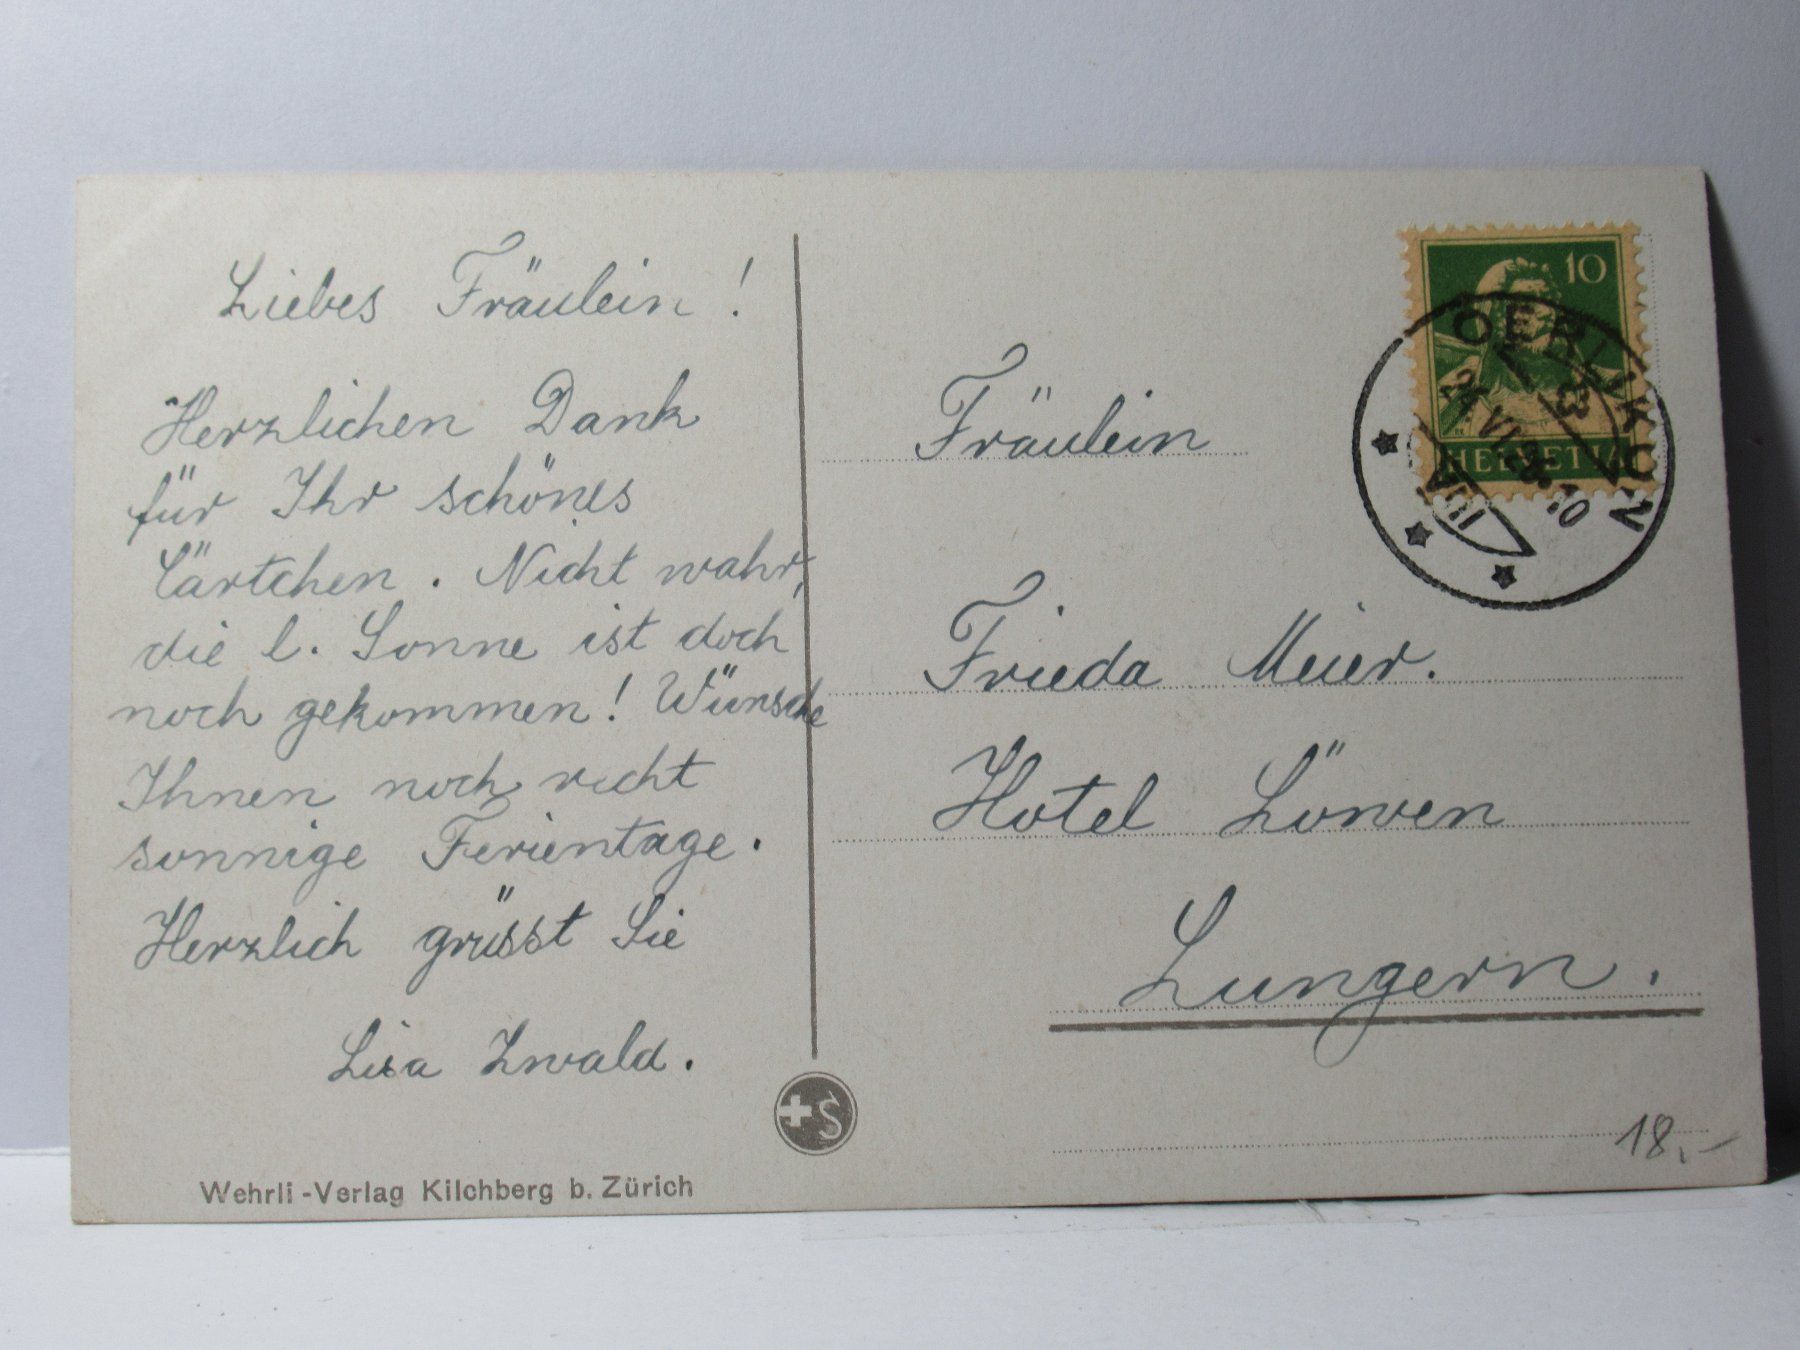 Liebes Fräulein !
Herzlichen Dank
für Ihr schönes
Cärtchen . Nicht wahr,
die l. Sonne ist doch
noch gekommen ! Wünsche
Ihnen noch recht
sonnige Ferientage .
Herzlich grüsst Sie
Lisa Zwald .
Wehrli-Verlag Kilchberg b. Zürich
+S
10
HELVETIA
OERLIKON
Fräulein
Frieda Meier .
Hotel Löwen
Lungern .
18.-